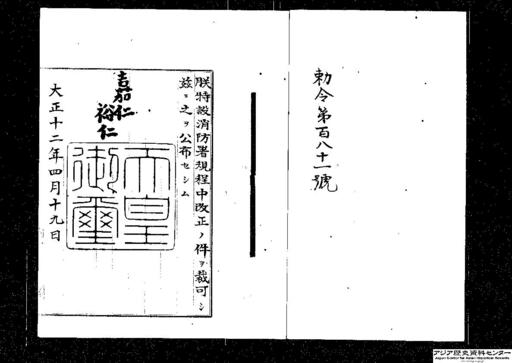 勅令第百八十一號
朕特設消防署規程中改正ノ件ヲ裁可シ
玆ニ之ヲ公布セシム
嘉仁
裕仁
天皇
御璽
大正十二年四月十九日
アジア歴史資料センター
Japan Center for Asian Historical Records